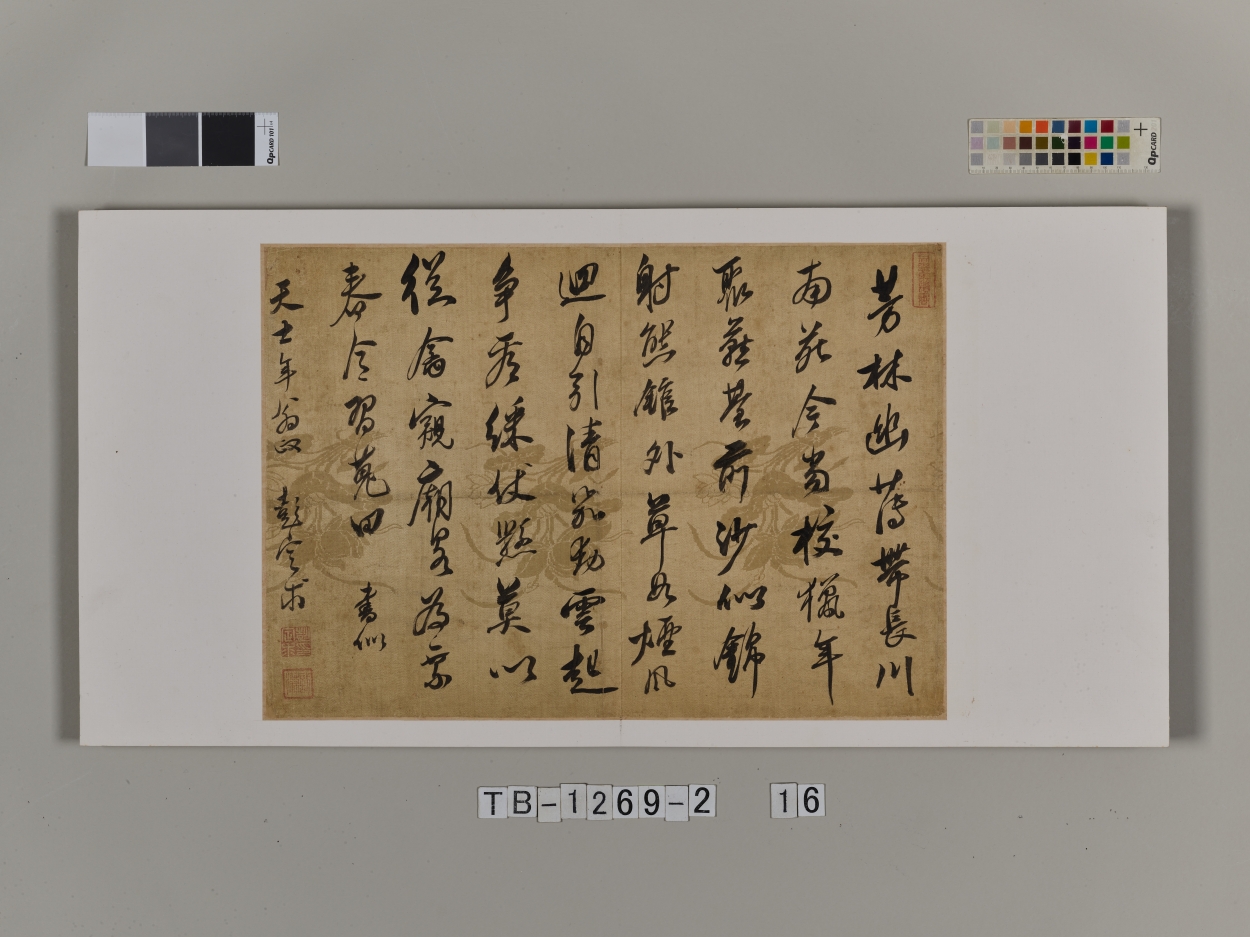 芳林幽薄帶長川
南苑今當校獵年
聚燕臺前沙似錦
射熊館外草如煙風
迴自引清笳動雲起
爭看綵仗懸莫以
從禽窺廟略為宗
春令習蒐田 書似
天士年翁政 彭定求
QPCARD 101
QPCARD
TB-1269-2 16